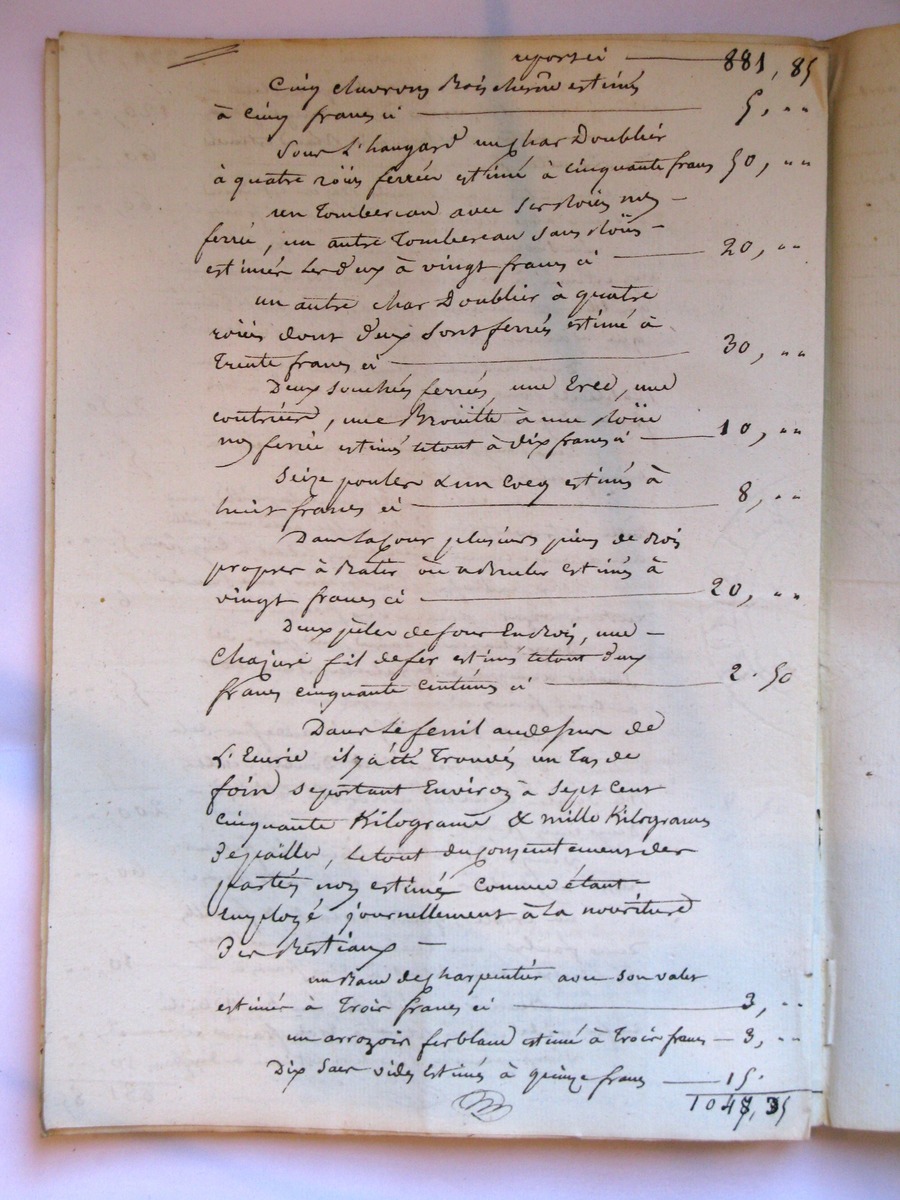 report ci 881, 85
Cinq chevrons Bois chêne estimés
à cinq francs ci 5, ""
Sous L'hangard un char Doublier
à quatre röües ferrées estimé à cinquante francs 50, ""
un Tombereau avec ses röües non
ferré, un autre Tombereau sans röües
estimés les deux à vingt francs ci 20, ""
un autre char Doublier à quatre
röües dont deux sont ferrés estimé à
Trente francs ci 30, ""
Deux ferrés, une , une
, une Broüette à une röüe
non ferrée estimés letout à dix francs ci 10, ""
Seize poules & un Cocq estimés à
huit francs ci 8, ""
Dans la Cour plusieurs pieces de Bois
propres à Batir ou a Bruler estimés à
vingt francs ci 20, ""
Deux pèles de four En Bois, une
fil de fer estimés letout deux
francs cinquante centimes ci 2. 50
Dans Le fenil audessus de
L'Ecurie il y a été Trouvés un Tas de
foin se portant Environ à Sept Cent
Cinquante Kilograme & mille Kilogrames
De paille, letout du consentement des
parties non estimé comme étant
Employé journellement à la nouriture
Des Bestiaux
un Banc de Charpentier avec son valet
estimés à Trois francs ci 3, ""
un arrozoir ferblanc estimé à Trois francs 3, ""
Dix Sacs vides Estimés à quinze francs 15.
1047, 35